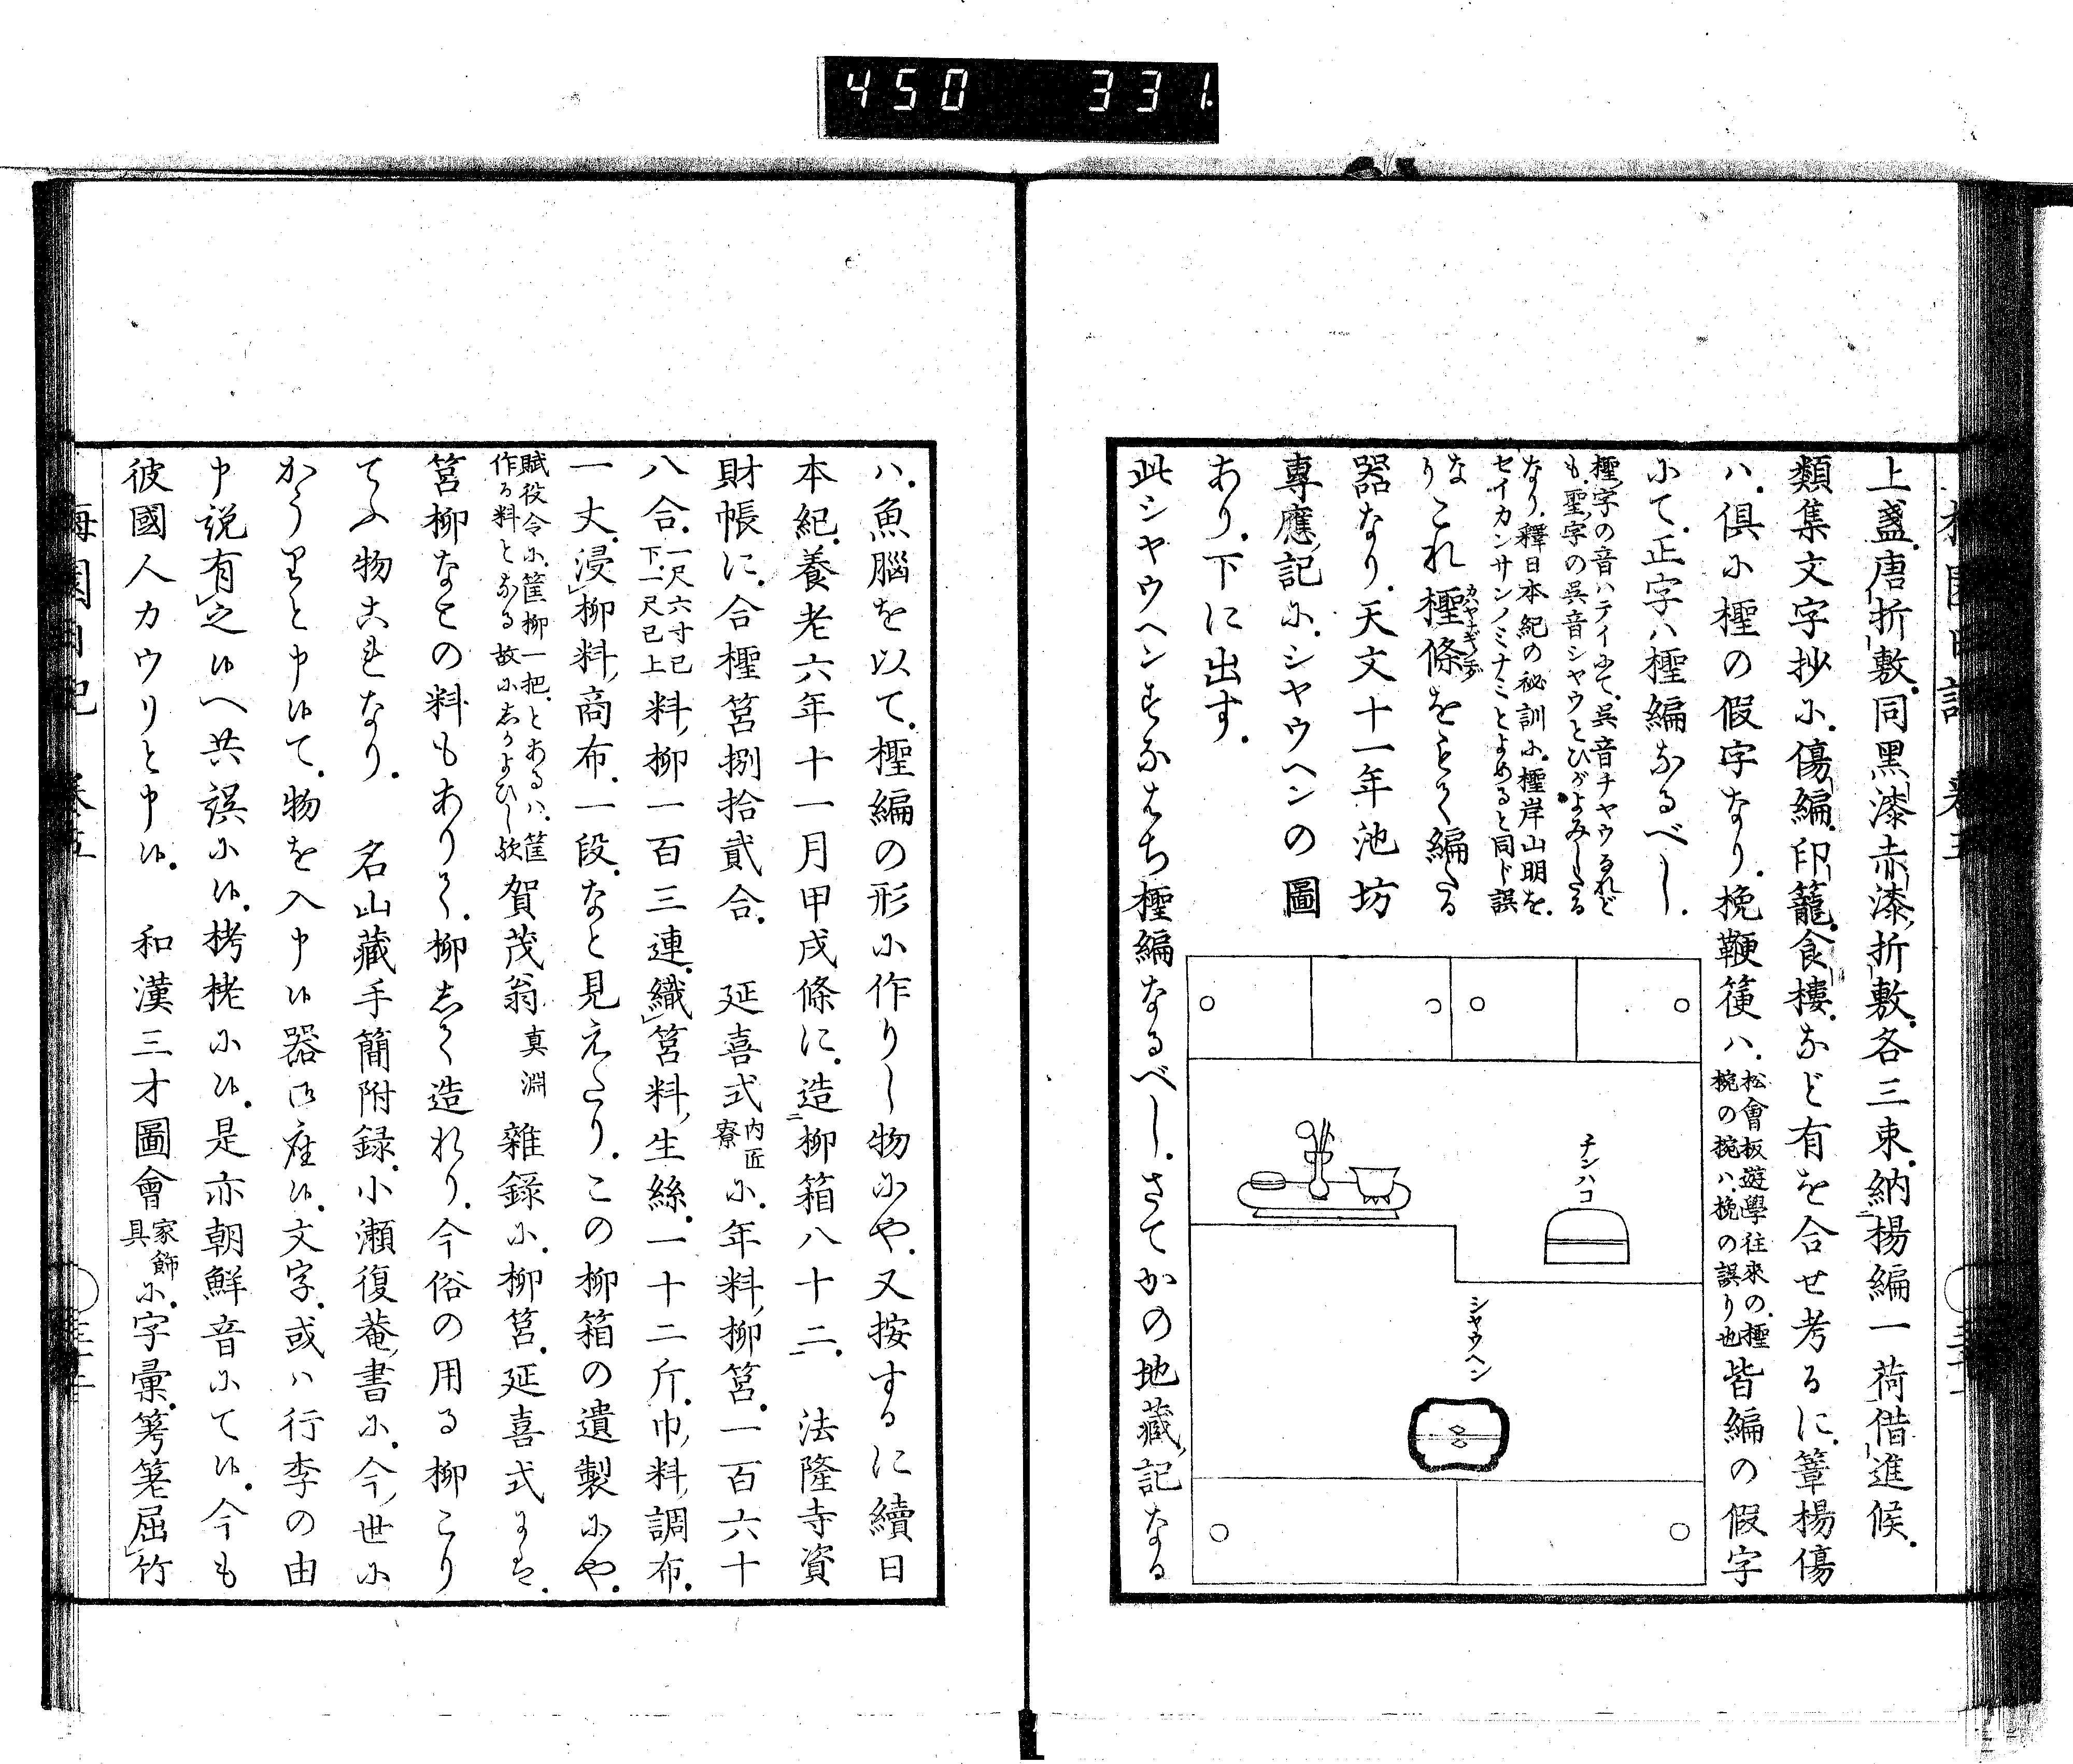 450 331.
上盞。唐折敷。同黑漆赤漆折敷。各三束。納楊編一荷借進候。
類集文字抄ニ。傷編。印籠。食樓。など有を合せ考るに。簟楊傷
ハ。倶に檉の假字なり。挽鞭箯ハ。松會板遊學往來の。檉椀の椀ハ。挽の誤り也皆編の假字
にて。正字ハ檉編なるべし。
檉字の音ハテイにて。呉音チヤウなれど
も。聖字の呉音シヤウとひがよみしたる
なり。釋日本紀の祕訓に。檉岸山明を。
セイカンサンノミナミとよめると同ド誤
なり
これ檉條をもて編たる
器なり。天文十一年池坊
專應記に。シヤウヘンの圖
あり。下に出す。
チンハコ
シヤウヘン
此シヤウヘンすなはち檉編なるべし。さてかの地藏記なる
ハ。魚腦を以て。檉編の形に作りし物にや。又按するに續日
本紀。養老六年十一月甲戌條に。造柳箱八十二。 法隆寺資
財帳に。合檉筥捌拾貳合。 延喜式内匠寮に。年料柳筥。一百六十
八合。一尺六寸已下。一尺已上料柳一百三連。織筥料生絲。一十二斤。巾料調布。
一丈。浸柳料商布。一段。なと見えたり。この柳箱の遺製にや。
賦役令に。筐柳一把。とあるハ。筐
作る料となる故にしかよひし歟
賀茂翁真淵雜録に。柳筥。延喜式には。
筥柳なとの料もありて。柳して造れり。今俗の用る柳こり
てふ物これなり。 名山藏手簡附録。小瀬復菴書に。今世に
かうりと申候て。物を入申候器御座候。文字。或ハ行李の由
申説有之候へ共誤に候。栲栳に候。是亦朝鮮音にて候。今も
彼國人カウリと申候。 和漢三才圖會家飾具に。字彙。筹筅屈竹